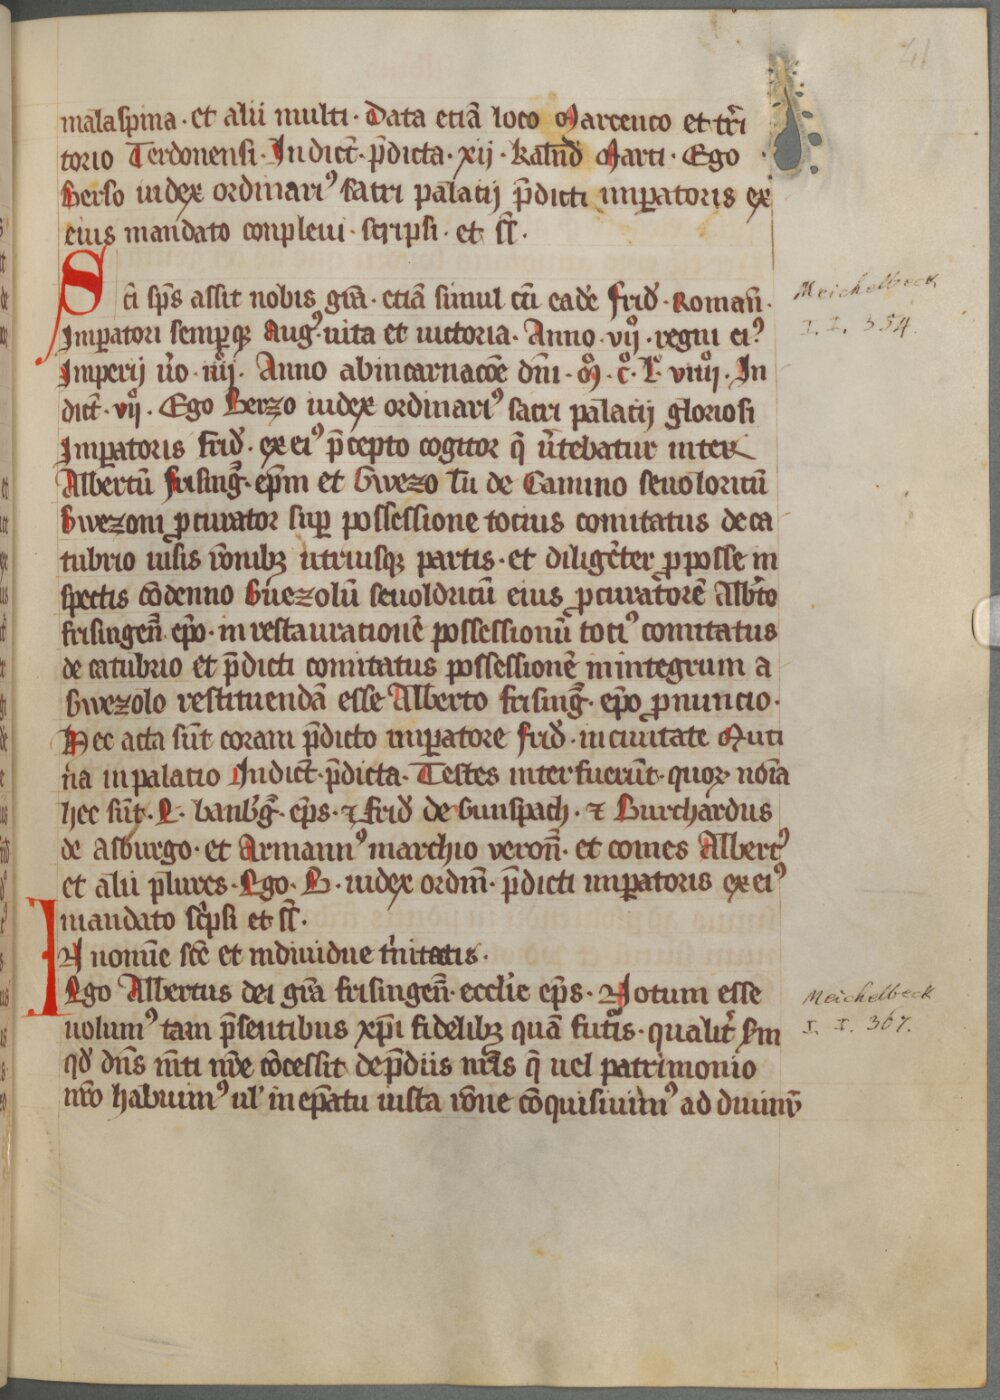 41
malaspina · et alii multi · Data etiā loco Marcenco et tr̄i
torio Terdonensi · Indict̄ · p̄dicta · xij · kalnd̄ Marti · Ego
Berso iudex ordinariꝰ sacri palatij p̄dicti imꝑatoris ex
eius mandato conpleui · scripsi · et ss̄ ·
Sc̄i sp̄s assit nobis gr̄a · etiā simul cū eadē frid̄ · Roman̄ ·
Imꝑatori semꝑqꝫ Augꝰ · uita et uictoria · Anno · vijͦ · regni eiꝰ
Imperij u̅o · iiij · Anno abincarnacōe dn̄i · Mͦ · cͦ · Lͦ viiijͦ · In
dict̄ · vijͦ · Ego Berzo iudex ordinariꝰ sacri palacij gloriosi
Imꝑatoris frid̄ · ex eiꝰ p̄cepto cogitor q̄ u̅tebatur inter
Albertū frising̅ · ep̄m et Gwezo lū de Camino seuoloricū
Gwezoni ꝓcurator suꝑ possessione tocius comitatus de ca
tubrio uisis rōnibꝫ utriusqꝫ partis · et diligēter ꝓposse in
spectis cōdenno Guezolū seuoldricū eius ꝓcuratorē Alb̄to
frisingen̄ ep̄o · in restaurationē possessionū totiꝰ comitatus
de catubrio et p̄dicti comitatus possessionē inintegrum a
Gwezolo restituendā esse Alberto frising̅ · ep̄o ꝓnuncio ·
Hec acta sūt coram p̄dicto imꝑatore frid̄ · in ciuitate Muti
na in palatio Indict̄ · p̄dicta · Testes interfuerūt · quoꝝ noīa
hec sūt · E · banb̄g̅ · ep̄s · ⁊ frid̄ de Gunspach · ⁊ Burchardus
de Asburgo · et Armannꝰ marchio veron̄ · et comes Albertꝰ
et alii plures · Ego · B · iudex ordin̄ · p̄dicti imꝑatoris ex eiꝰ
mandato sc̄psi et ss̄ ·
IN nomīe sc̄e et indiuidue t̄nitatis ·
Ego Albertus dei gr̄a frisingen̄ · eccl̄ie ep̄s · Notum esse
uolumꝰ tam p̄sentibus xp̄i fidelibꝫ quā fut̄is · qualit̄ s̄m
qd̄ dn̄s m̄ti nr̄e cōcessit de p̄diis nr̄is q̄ uel patrimonio
nr̄o habuimꝰ ul' in ep̄atu iusta rōne cōquisiuimꝰ ad diuinū
Meichelbeck
I. I. 354.
Meichelbeck
I. I. 367.